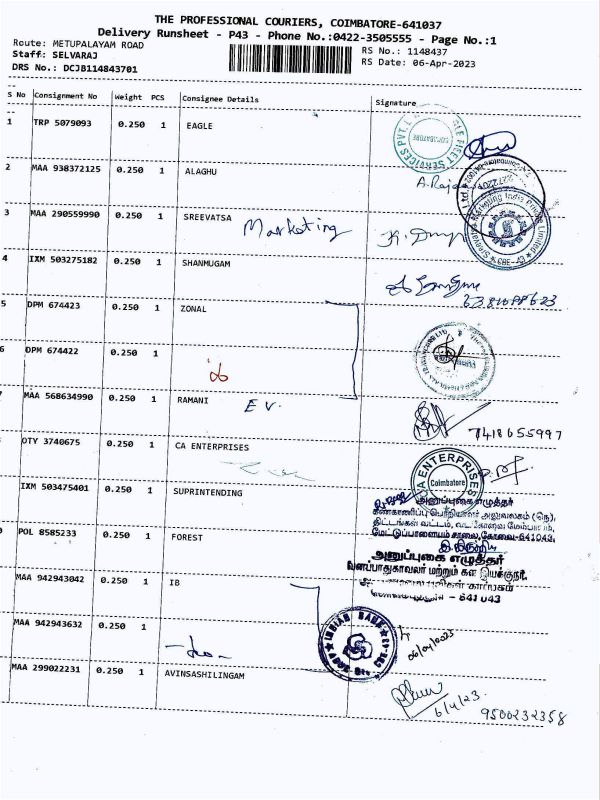 THE PROFESSIONAL COURIERS, COIMBATORE-641037
Delivery Runsheet - P43 - Phone No.:0422-3505555 - Page No.:1
Route: METUPALAYAM ROAD
RS No.: 1148437
Staff: SELVARAJ
RS Date: 06-Apr-2023
DRS No.: DCJB114843701
S No Consignment No Weight PCS Consignee Details Signature
1 TRP 5079093 0.250 1 EAGLE
COIMBATORE
2 MAA 938372125 0.250 1 ALAGHU
A. Raja
3 MAA 290559990 0.250 1 SREEVATSA
Marketing
CBE - 43
4 IXM 503275182 0.250 1 SHANMUGAM
5 DPM 674423 0.250 1 ZONAL
6 DPM 674422 0.250 1
7 MAA 568634990 0.250 1 RAMANI
E V.
7418655997
OTY 3740675 0.250 1 CA ENTERPRISES
CA ENTERPRISES
Coimbatore
IXM 503475401 0.250 1 SUPRINTENDING
அனுப்புகை எழுத்தர்
மேட்டுப்பாளையம் சாலை, கோவை-641043.
POL 8585233 0.250 1 FOREST
அனுப்புகை எழுத்தர்
வனப்பாதுகாவலர் மற்றும் கள இயக்குநர்
- 641 043
MAA 942943042 0.250 1 IB
INDIAN BANK
MAA 942943632 0.250 1
06/04/2023
MAA 299022231 0.250 1 AVINSASHILINGAM
6/4/23.
9500232358